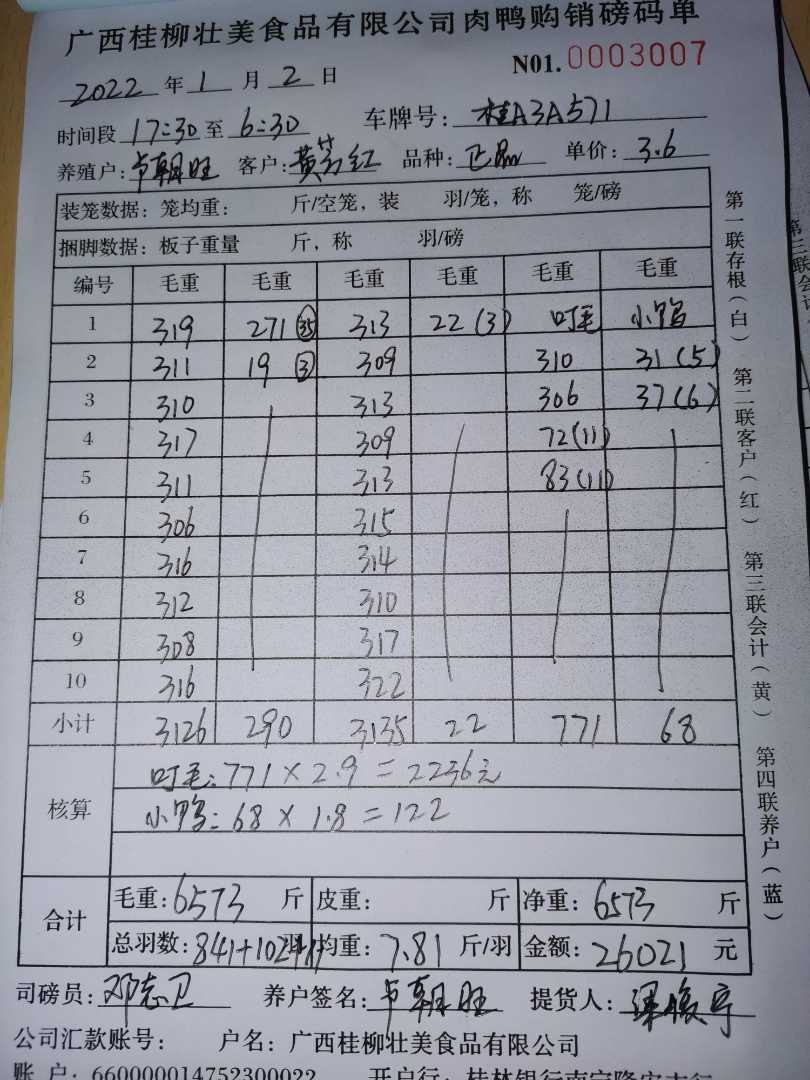 广西桂柳壮美食品有限公司肉鸭购销磅码单
2022 年 1 月 2 日 N01. 0003007
时间段 17:30 至 6:30 车牌号: 桂A3A571
养殖户: 卢朝旺 客户: 黄芴红 品种: 正品 单价: 3.6
装笼数据: 笼均重: 斤/空笼, 装 羽/笼, 称 笼/磅
捆脚数据: 板子重量 斤, 称 羽/磅
编号 毛重 毛重 毛重 毛重 毛重 毛重
1 319 271 (35) 313 22 (3) 叮毛 小鸭
2 311 19 (3) 309 310 31 (5)
3 310 313 306 37 (6)
4 317 309 72 (11)
5 311 313 83 (11)
6 306 315
7 316 314
8 312 310
9 308 317
10 316 322
小计 3126 290 3135 22 771 68
核算 叮毛: 771 × 2.9 = 2236元
小鸭: 68 × 1.8 = 122
合计 毛重: 6573 斤 皮重: 斤 净重: 6573 斤
总羽数: 841+102+11 羽 均重: 7.81 斤/羽 金额: 26021 元
司磅员: 邓志卫 养户签名: 卢朝旺 提货人:
公司汇款账号: 户名: 广西桂柳壮美食品有限公司
账 户: 660000014752300022 开户行: 桂林银行南宁隆安支行
第一联存根(白) 第二联客户(红) 第三联会计(黄) 第四联养户(蓝)
第三联会计